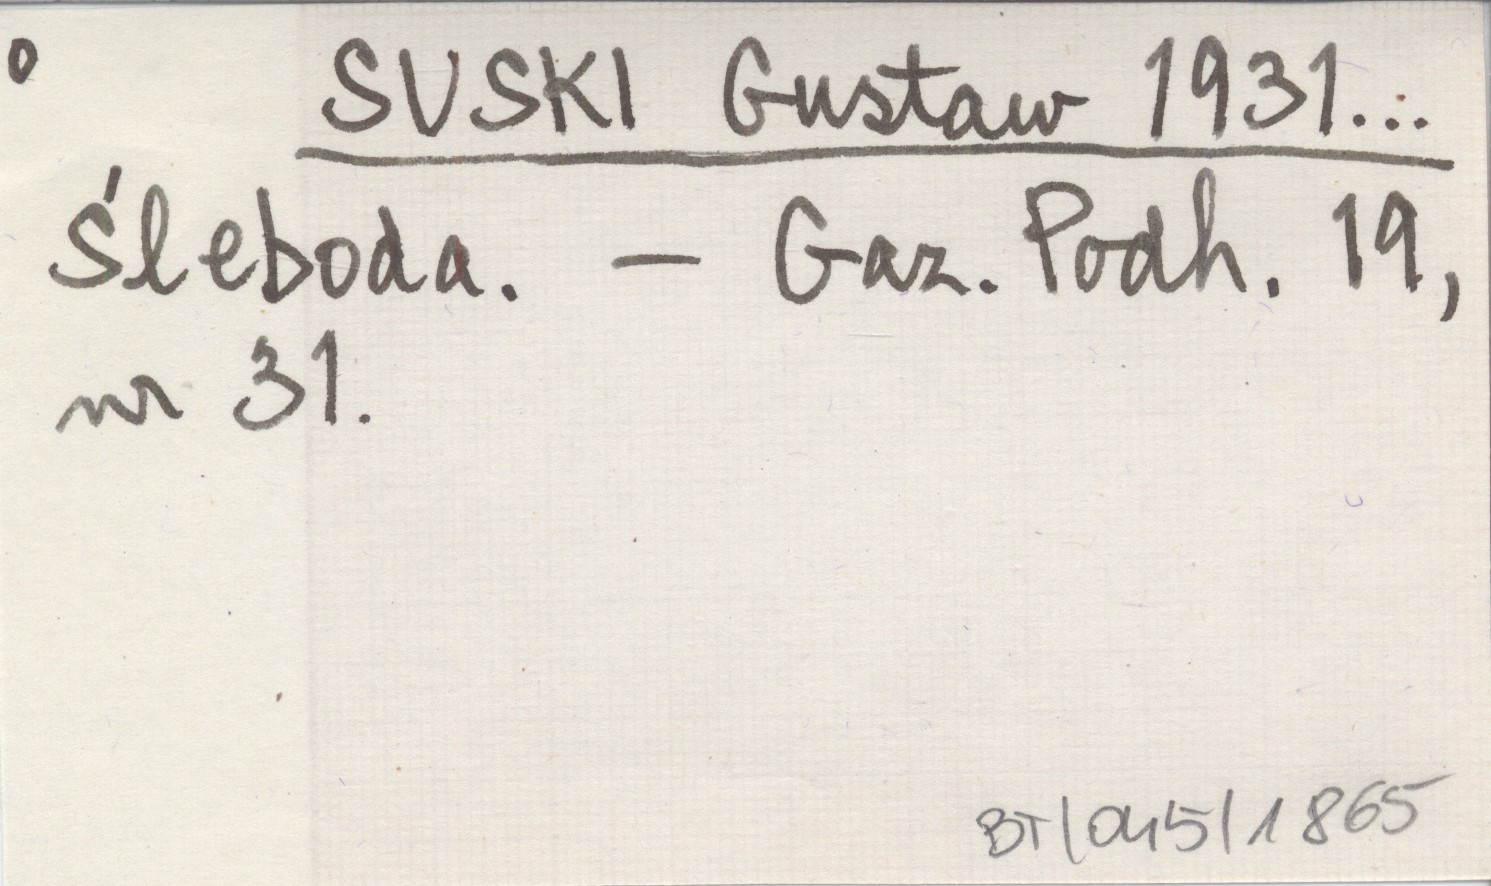 o SUSKI Gustaw 1931...
Śleboda. — Gaz. Podh. 19,
nr 31.
BT/045/1865